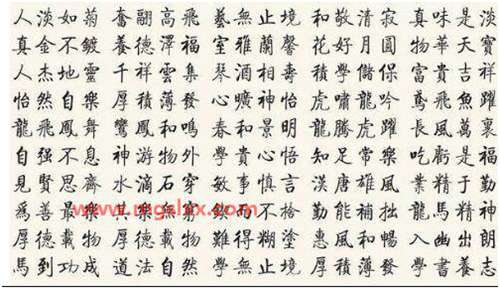 人淡如菊 奮翮高飛 藝無止境 和敬清寂 真味是淡
真金不鍍 養德澤福 室雅蘭馨 花好月圓 物華天寶
人杰地靈 千祥雲集 琴酒相壽 積學儲保 富貴吉祥
怡然自樂 厚積薄發 心曠神怡 虎嘯龍吟 鳶飛魚躍
龍飛鳳舞 鸞鳳和鳴 春和景明 龍騰虎躍 長風萬裏
自强不息 神游物外 學貴心悟 知足常樂 吃虧是福
見賢思齊 水滴石穿 敏事慎言 漢唐雄風 業精于勤
爲善最樂 勤能補拙 龍馬精神
厚德載物 難得糊塗 惠風和暢 入幽出朗
馬到功成 道法自然 學無止境 厚積薄發 學書養志